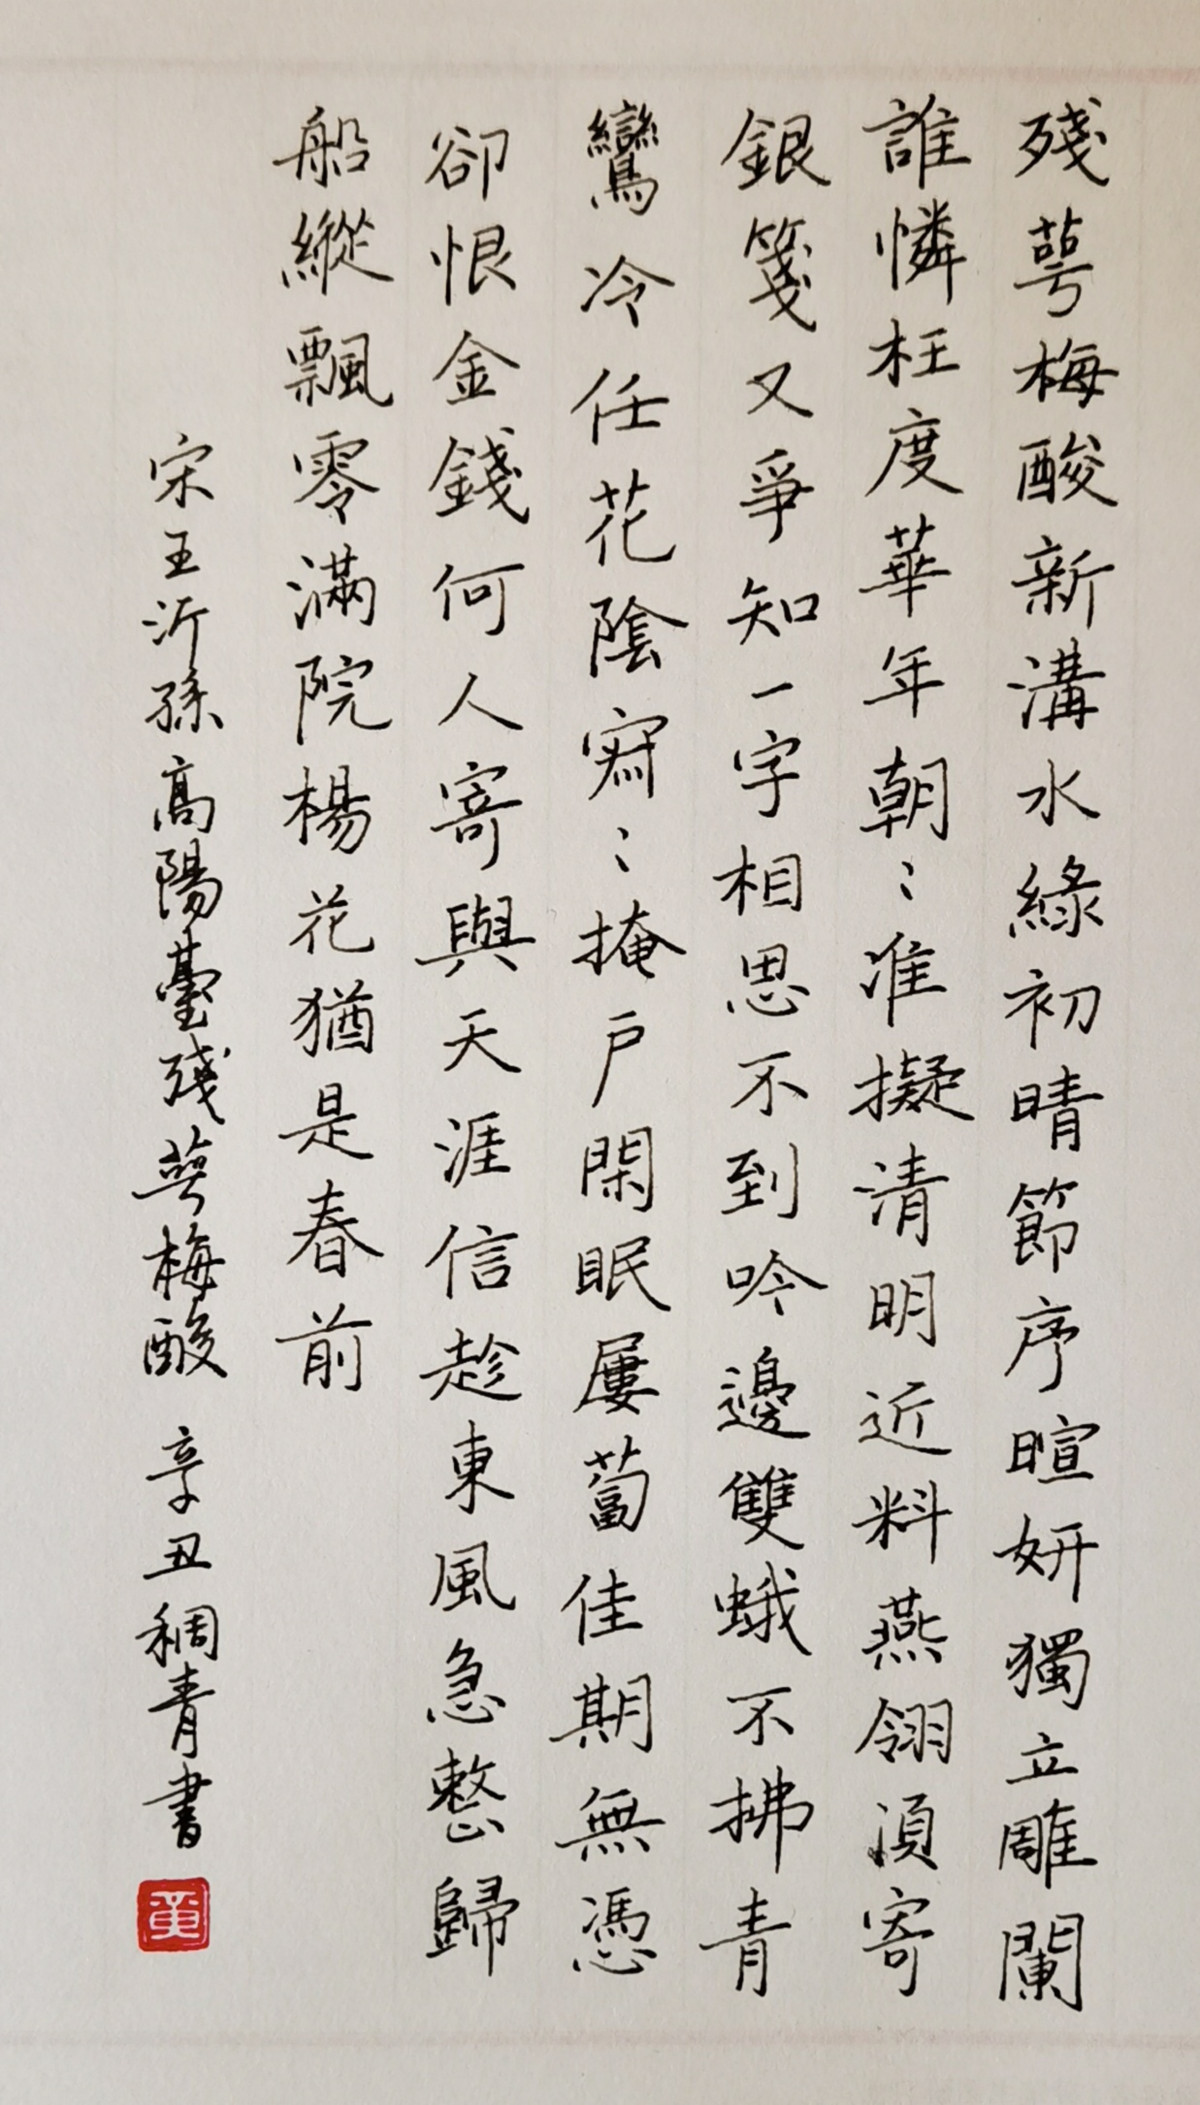 殘萼梅酸新溝水綠初晴節序暄妍獨立雕闌
誰憐枉度華年朝〻准擬清明近料燕翎須寄
銀箋又爭知一字相思不到吟邊雙蛾不拂青
鸞冷任花陰寂〻掩戶閑眠屢蔔佳期無憑
卻恨金錢何人寄與天涯信趁東風急整歸
船縱飄零滿院楊花猶是春前
宋王沂孫高陽臺殘萼梅酸 辛丑稠青書